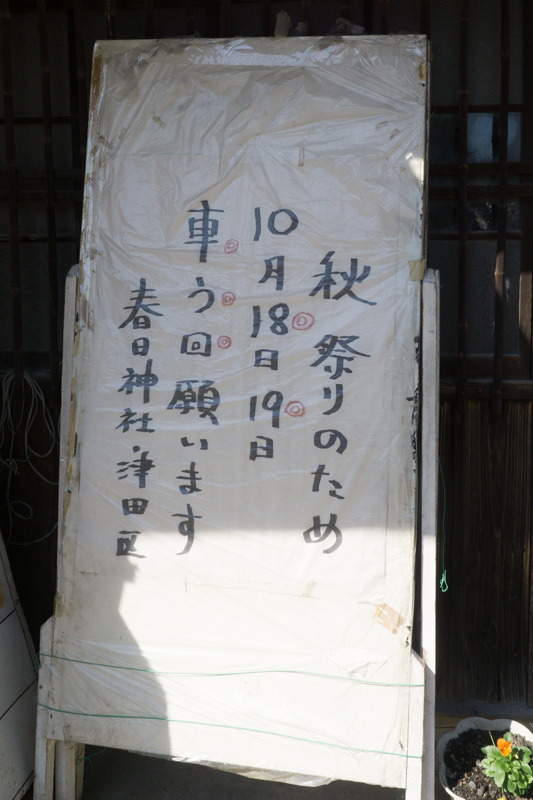 秋祭りのため
10月18日19日
車う回願います
春日神社・津田区